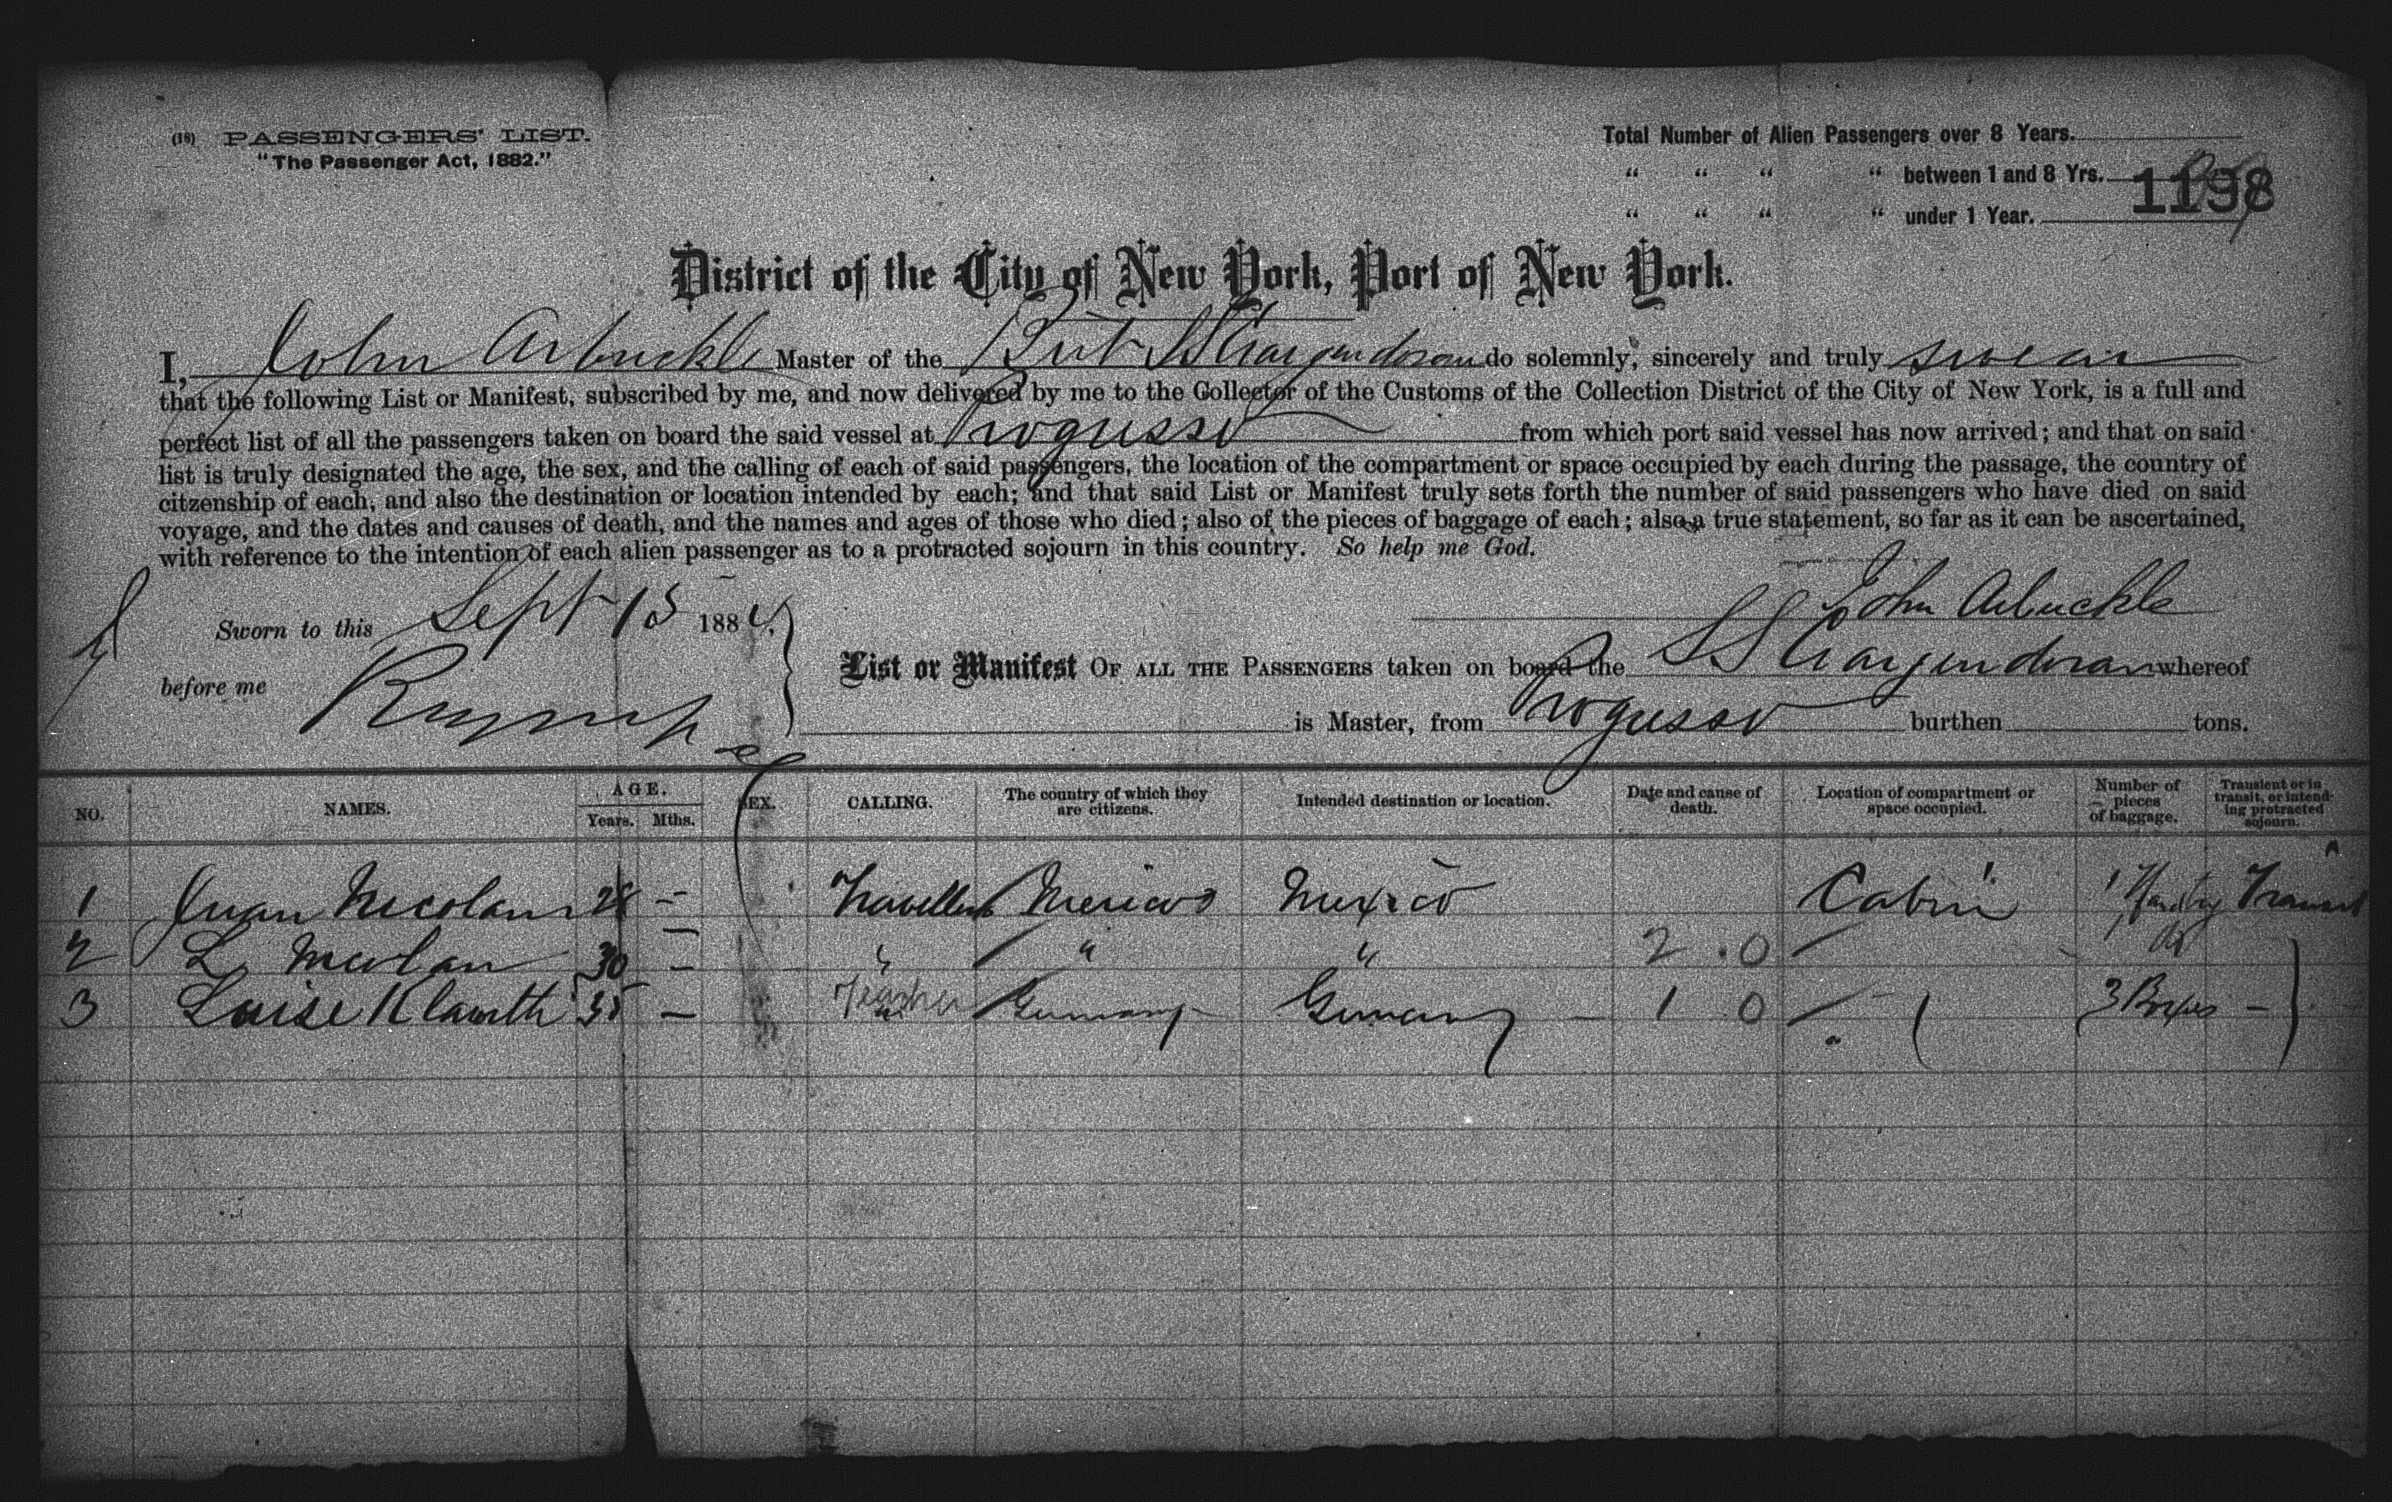 (18) PASSENGERS' LIST.
"The Passenger Act, 1882."
Total Number of Alien Passengers over 8 Years.
" " " " between 1 and 8 Yrs.
" " " " under 1 Year.
1198
District of the City of New York, Port of New York.
I, John Arbuckle Master of the Brit SS Craigendoran do solemnly, sincerely and truly swear
that the following List or Manifest, subscribed by me, and now delivered by me to the Collector of the Customs of the Collection District of the City of New York, is a full and
perfect list of all the passengers taken on board the said vessel at Progusso from which port said vessel has now arrived; and that on said
list is truly designated the age, the sex, and the calling of each of said passengers, the location of the compartment or space occupied by each during the passage, the country of
citzenship of each, and also the destination or location intended by each; and that said List or Manifest truly sets forth the number of said passengers who have died on said
voyage, and the dates and causes of death, and the names and ages of those who died; also of the pieces of baggage of each; also a true statement, so far as it can be ascertained,
with reference to the intention of each alien passenger as to a protracted sojourn in this country. So help me God.
Sworn to this Sept 15 1884,
John Arbuckle
before me
List or Manifest OF ALL THE PASSENGERS taken on board the SS Craigendoran whereof
is Master, from Progusso burthen tons.
NO. NAMES. AGE. Years. Mths. SEX. CALLING. The country of which they are citizens. Intended destination or location. Date and cause of death. Location of compartment or space occupied. Number of pieces of baggage. Transient or in transit, or intending protracted sojourn.
1 Juan Nicolan 28 – Traveller Mexico Mexico Cabin 1 Transit
2 L Nicolan 30 – " " " 2 . 0 do
3 Luise Klawith 35 – Teacher Germany Germany 1 0 3 Boxes –